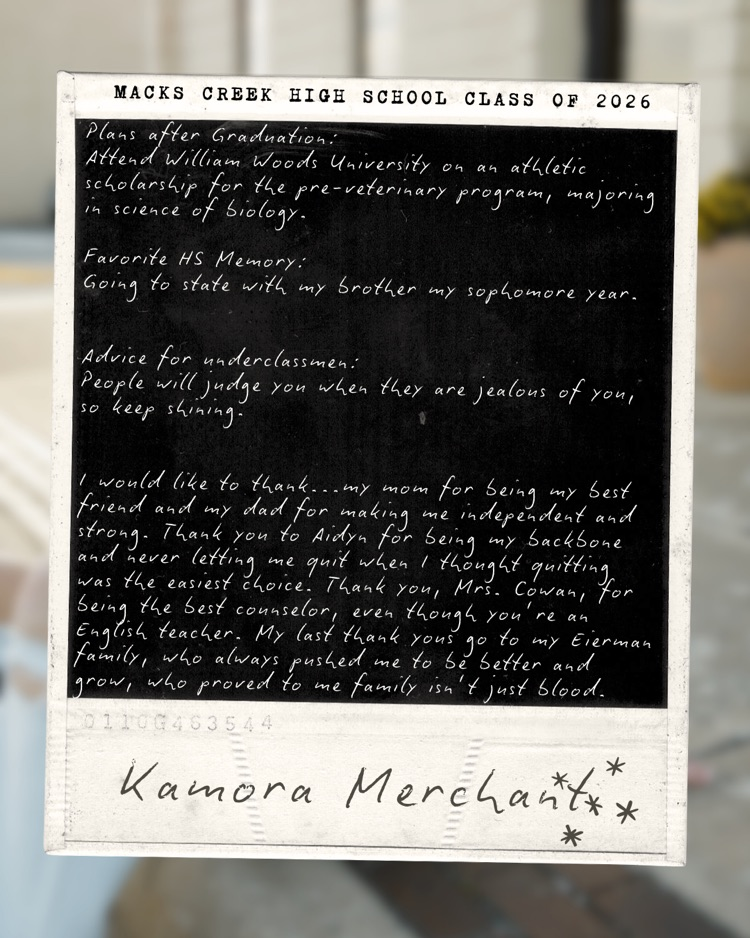 MACKS CREEK HIGH SCHOOL CLASS OF 2026
Plans after Graduation:
Attend William Woods University on an athletic
scholarship for the pre-veterinary program, majoring
in science of biology.
Favorite HS Memory:
Going to state with my brother my sophomore year.
Advice for underclassmen:
People will judge you when they are jealous of you,
so keep shining.
I would like to thank...my mom for being my best
friend and my dad for making me independent and
strong. Thank you to Aidyn for being my backbone
and never letting me quit when I thought quitting
was the easiest choice. Thank you, Mrs. Cowan, for
being the best counselor, even though you're an
English teacher. My last thank yous go to my Eierman
family, who always pushed me to be better and
grow, who proved to me family isn't just blood.
0110G463544
Kamora Merchant